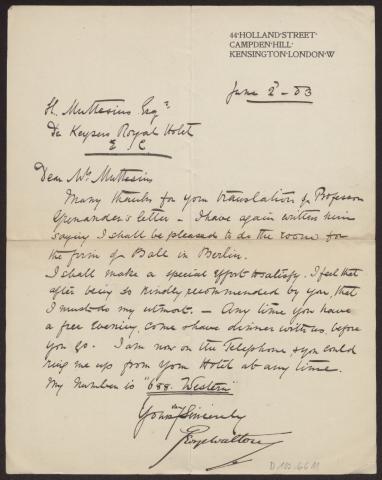 44·HOLLAND·STREET·
CAMPDEN·HILL·
KENSINGTON·LONDON·W
June 2d - 03
H. Muthesius Esqre
De Keysers Royal Hotel
E C.
Dear Mr Muthesius
Many thanks for your translation of Professor
Grenander's letter - I have again written him
saying I shall be pleased to do the room for
the firm of Ball in Berlin.
I shall make a special effort to satisfy. I feel that
after being so kindly recommended by you, that
I must do my utmost. - Any time you have
a free evening, come & have dinner with us before
you go. I am now on the Telephone & you could
ring me up from your Hotel at any time.
My number is "688. Western"
Yours very Sincerely
George Walton